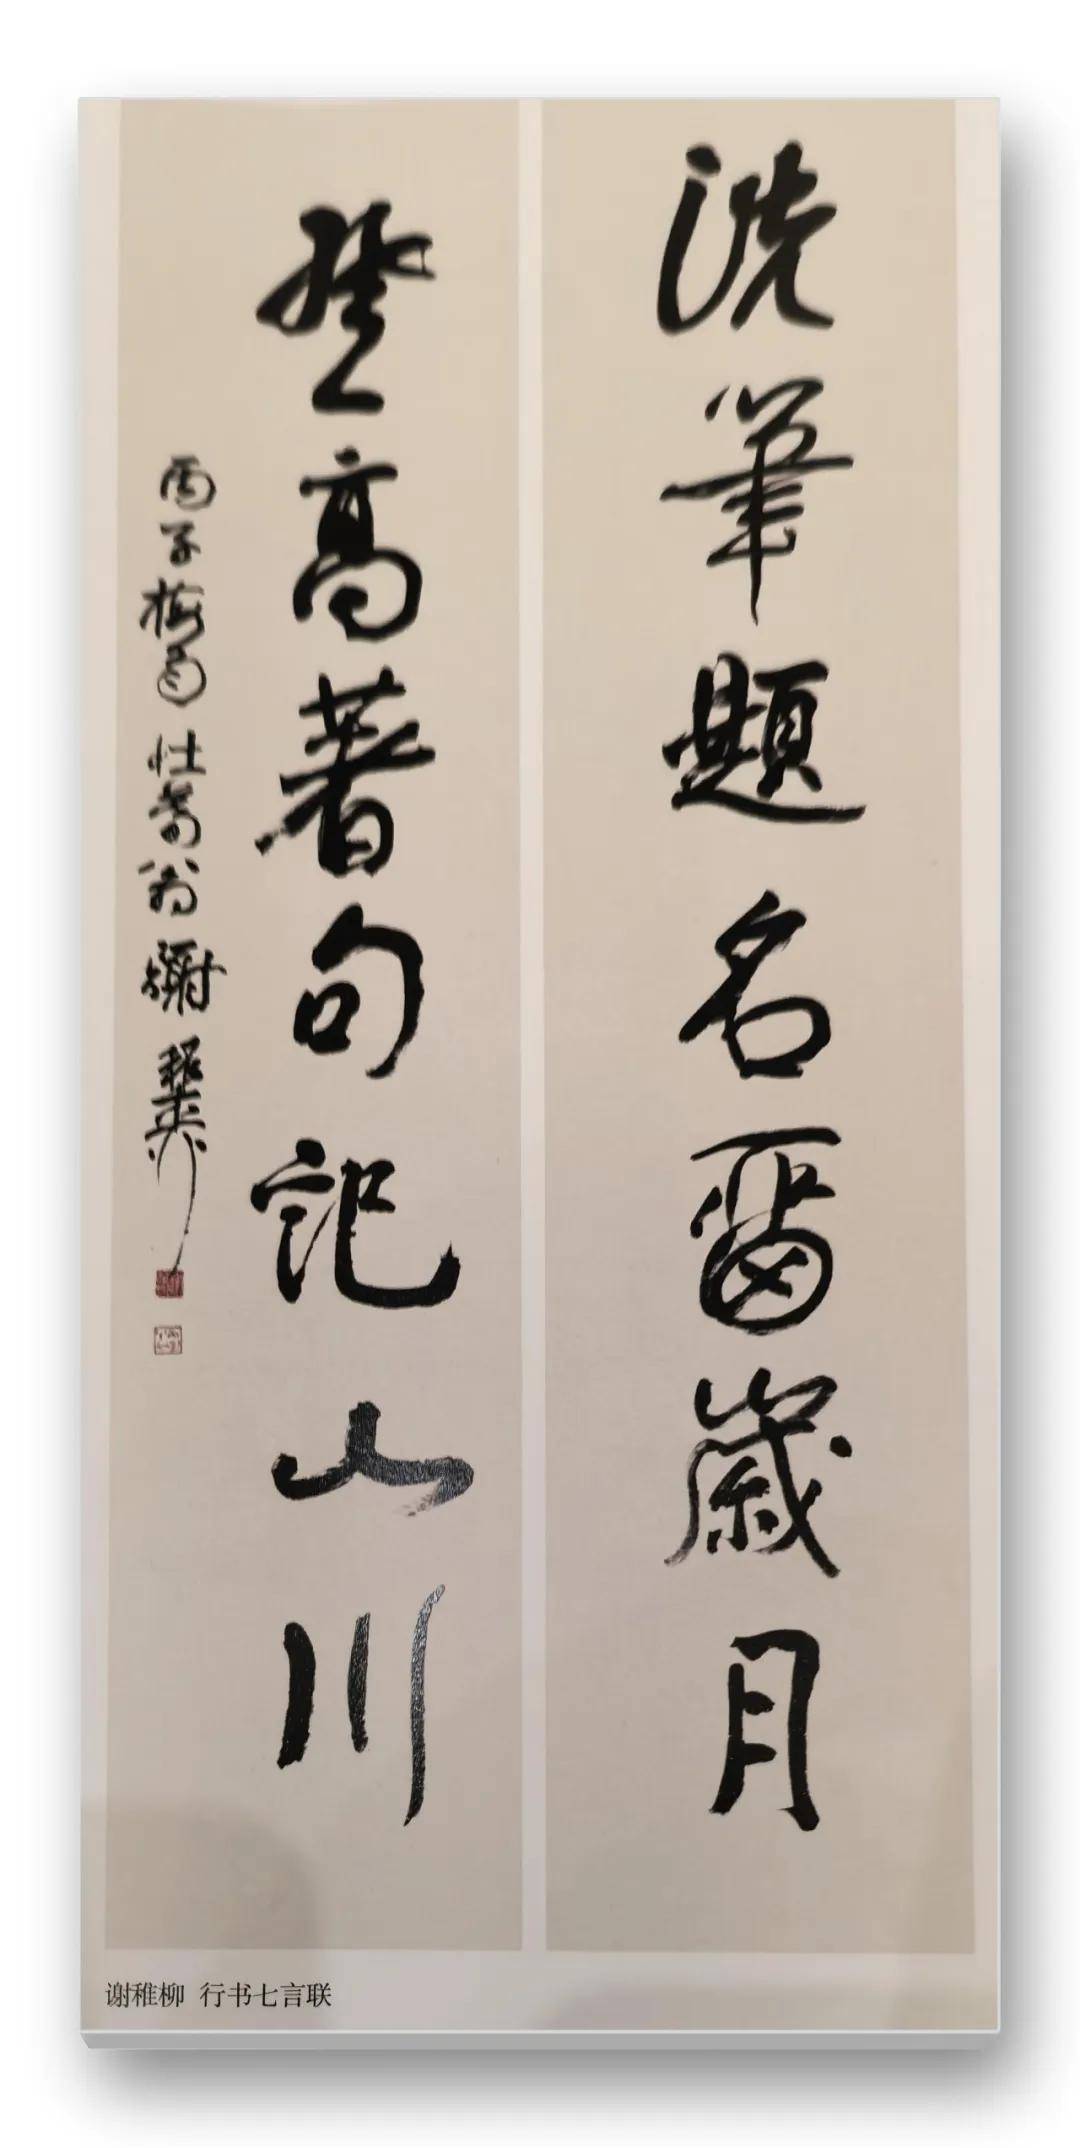 洗筆題名留歲月
登高著句記山川
丙子梅月壮暮翁謝稚柳
谢稚柳 行书七言联